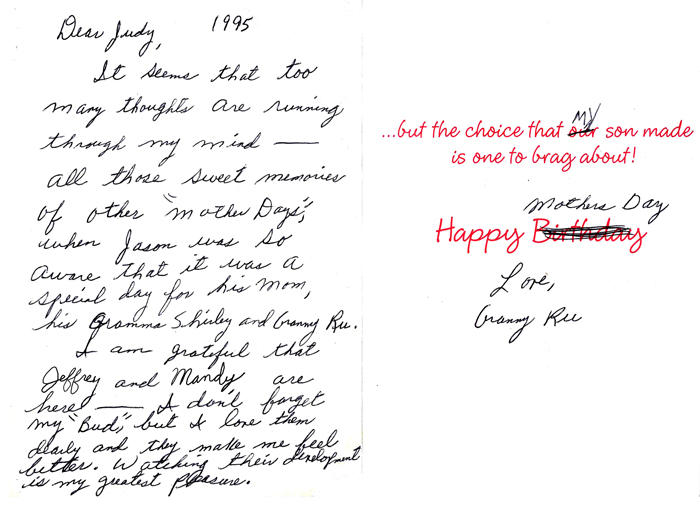 Dear Judy, 1995
It seems that too
many thoughts are running
through my mind —
all those sweet memories
of other "Mother Days",
when Jason was so
aware that it was a
special day for his Mom,
his Gramma Shirley and Granny Ru.
I am grateful that
Jeffrey and Mandy are
here — I don't forget
my "Bud", but I love them
dearly and they make me feel
better. Watching their development
is my greatest pleasure.
MY
...but the choice that our son made
is one to brag about!
Mothers Day
Happy Birthday
Love,
Granny Ru